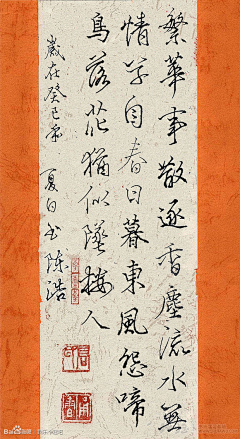 繁華事散逐香塵流水無
情草自春日暮東風怨啼
鳥落花猶似墜樓人
歲在癸巳年 夏日書 陳浩